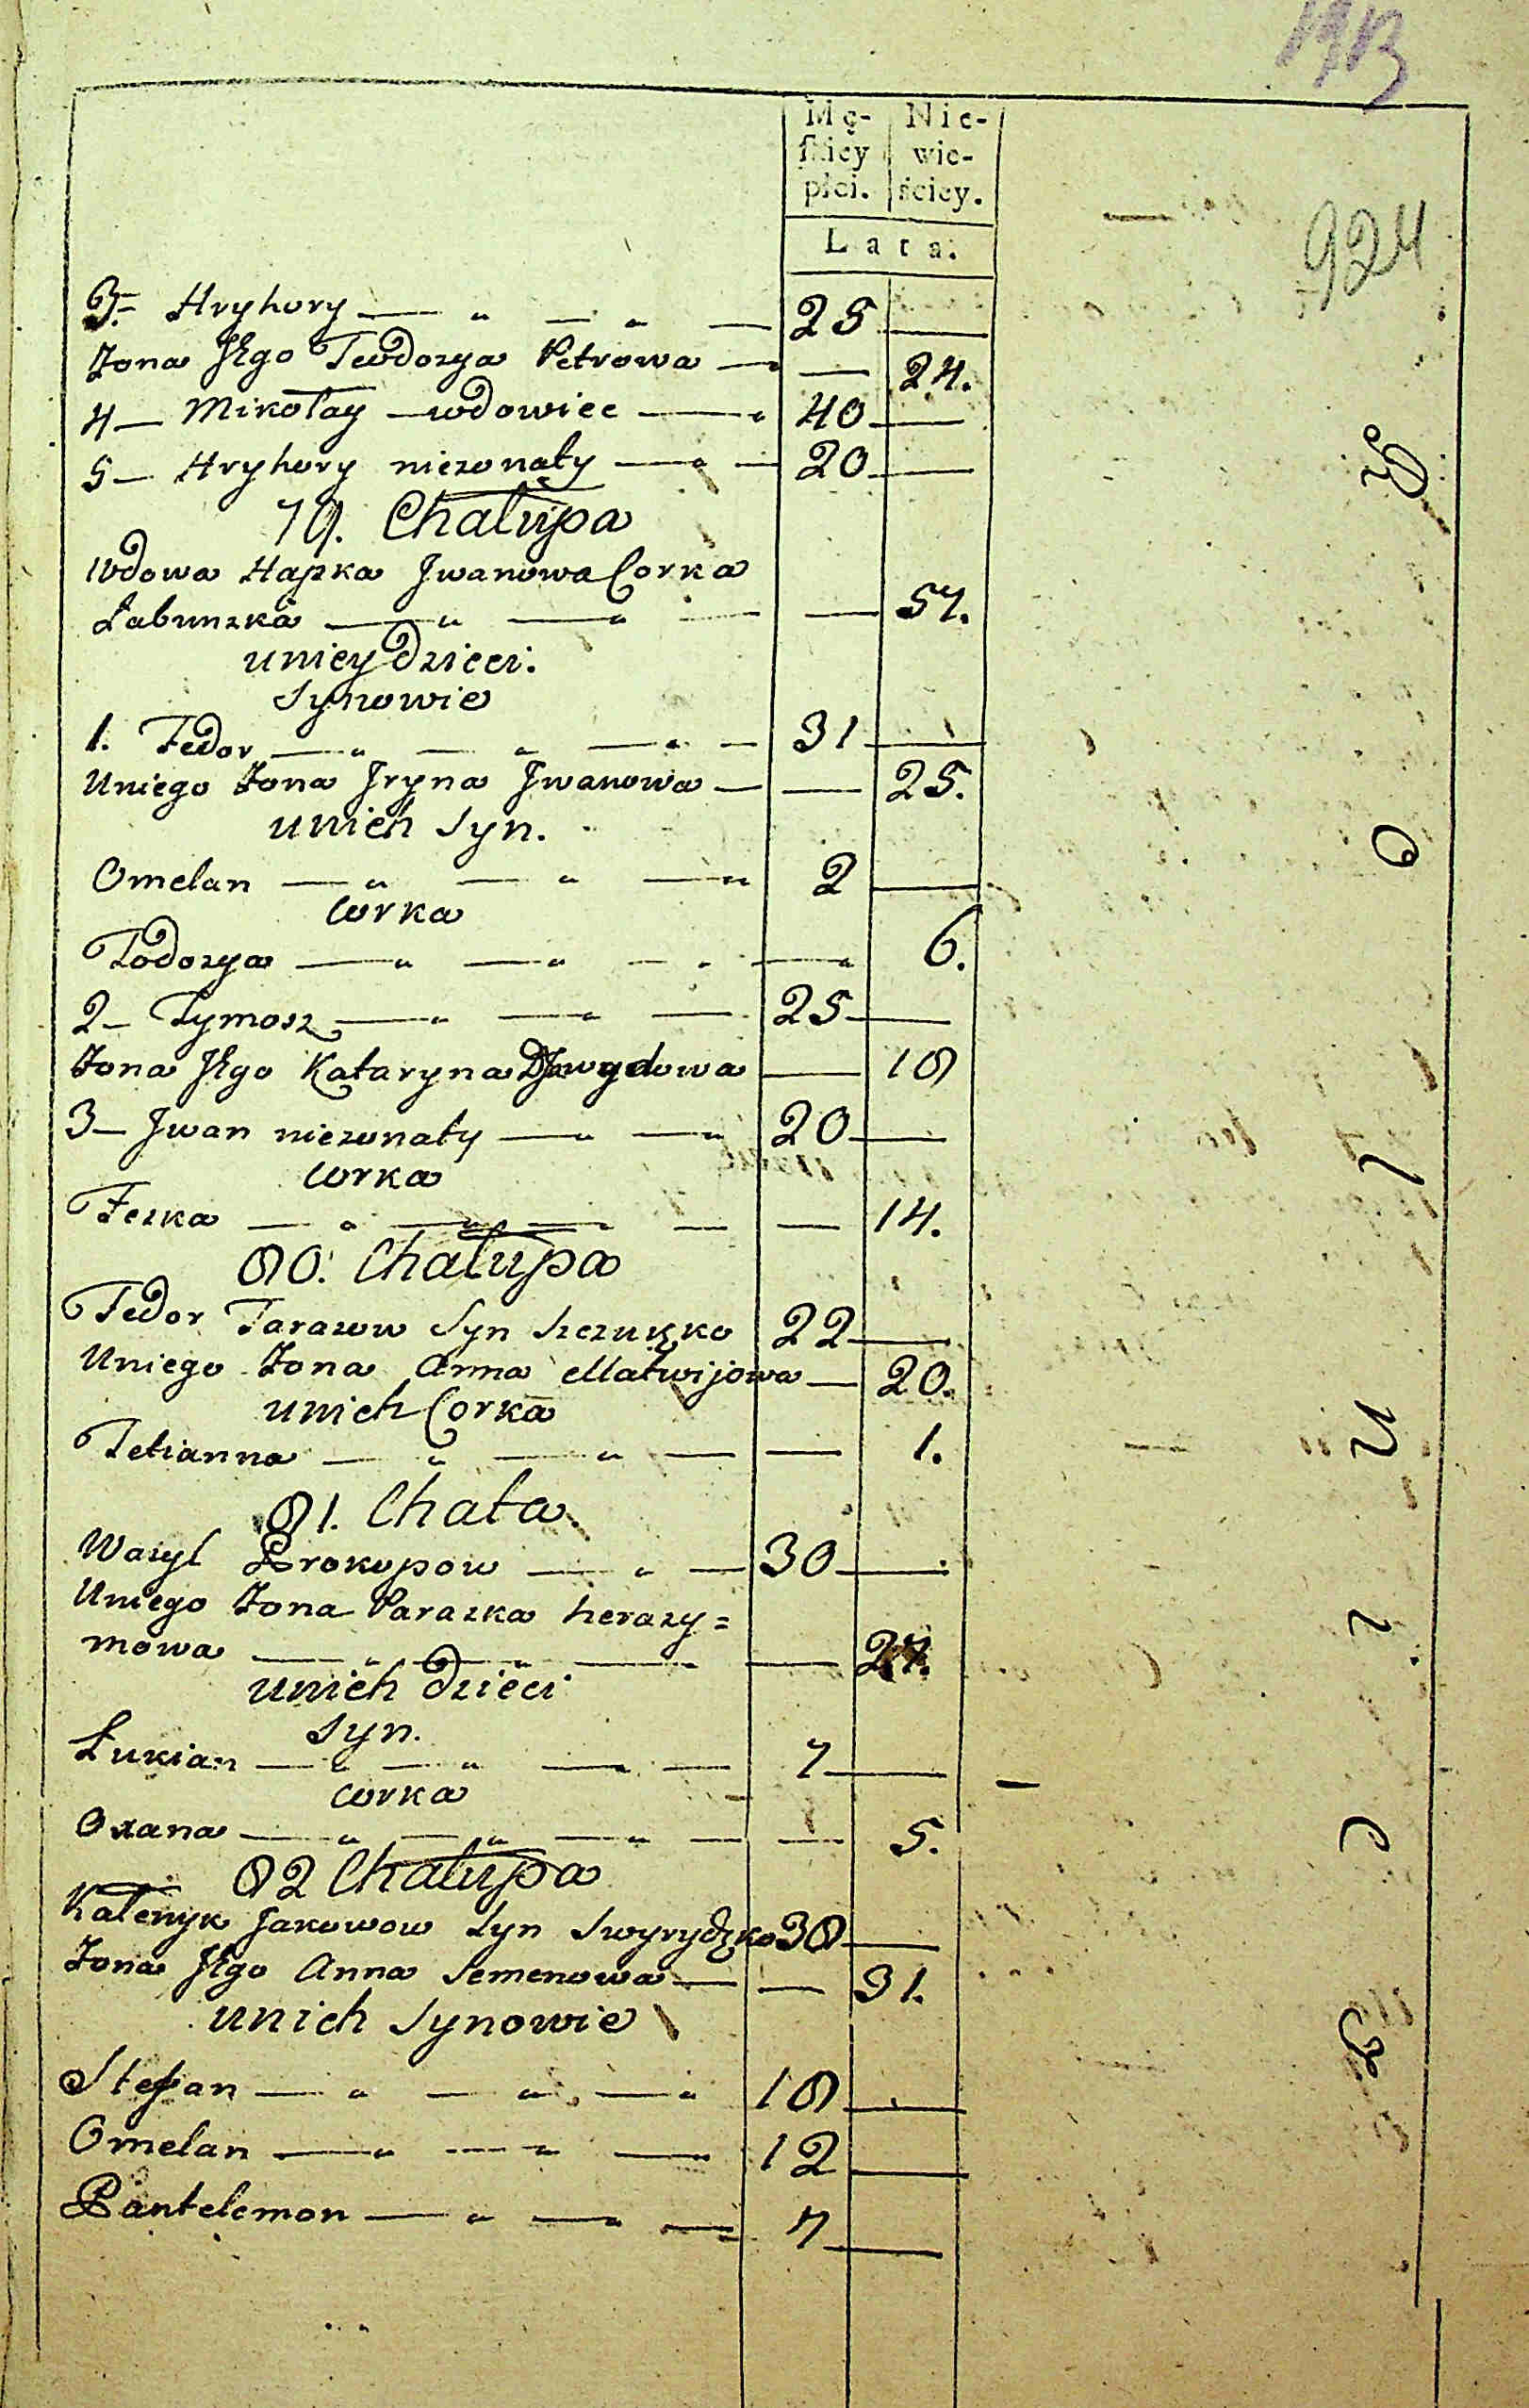 Mę-
skiey
płci.
Nie-
wie-
ściey.
Lata.
924
3- Hryhory — " — " — 25 —
Zona Jego Teodozya Petrowa — — 24.
4 — Mikołay — wdowiec — " 40 —
5 — Hryhory niezonaty — " — 20 —
79. Chałupa
Wdowa Hapka Jwanowa Corka
Łabunska — " — " — — 57.
uniey dzieci.
Synowie
1. Fedor — " — " — " — 31 —
Uniego Zona Jryna Jwanowa — — 25.
unich Syn.
Omelan — " — " — " 2 —
Corka
Todozya — " — " — " — " 6.
2 — Tymosz — " — " — 25 —
Zona Jego Kataryna Dawydowa — 18
3 — Jwan niezonaty — " — " 20 —
Corka
Feska — " — " — " — — 14.
80. Chałupa
Fedor Tarasow Syn 22 —
Uniego Zona Anna Matwijowa — 20.
unich Corka
Tetianna — " — " — — 1.
81. Chata
Wasyl Prokopow — " — 30 —
Uniego Zona Paraska herasy=
mowa — " — " — — 27.
unich dzieci
Syn.
Łukian — " — " — " — 7 —
Corka
Oxana — " — " — " — — 5.
82 Chałupa
Kałenyk Jakowow Syn Swyrydzko 38 —
Zona Jego Anna Semenowa — — 31.
unich Synowie
Stefan — " — " — " 18 —
Omelan — " — " — " 12 —
Pantelemon — " — " — 7 —